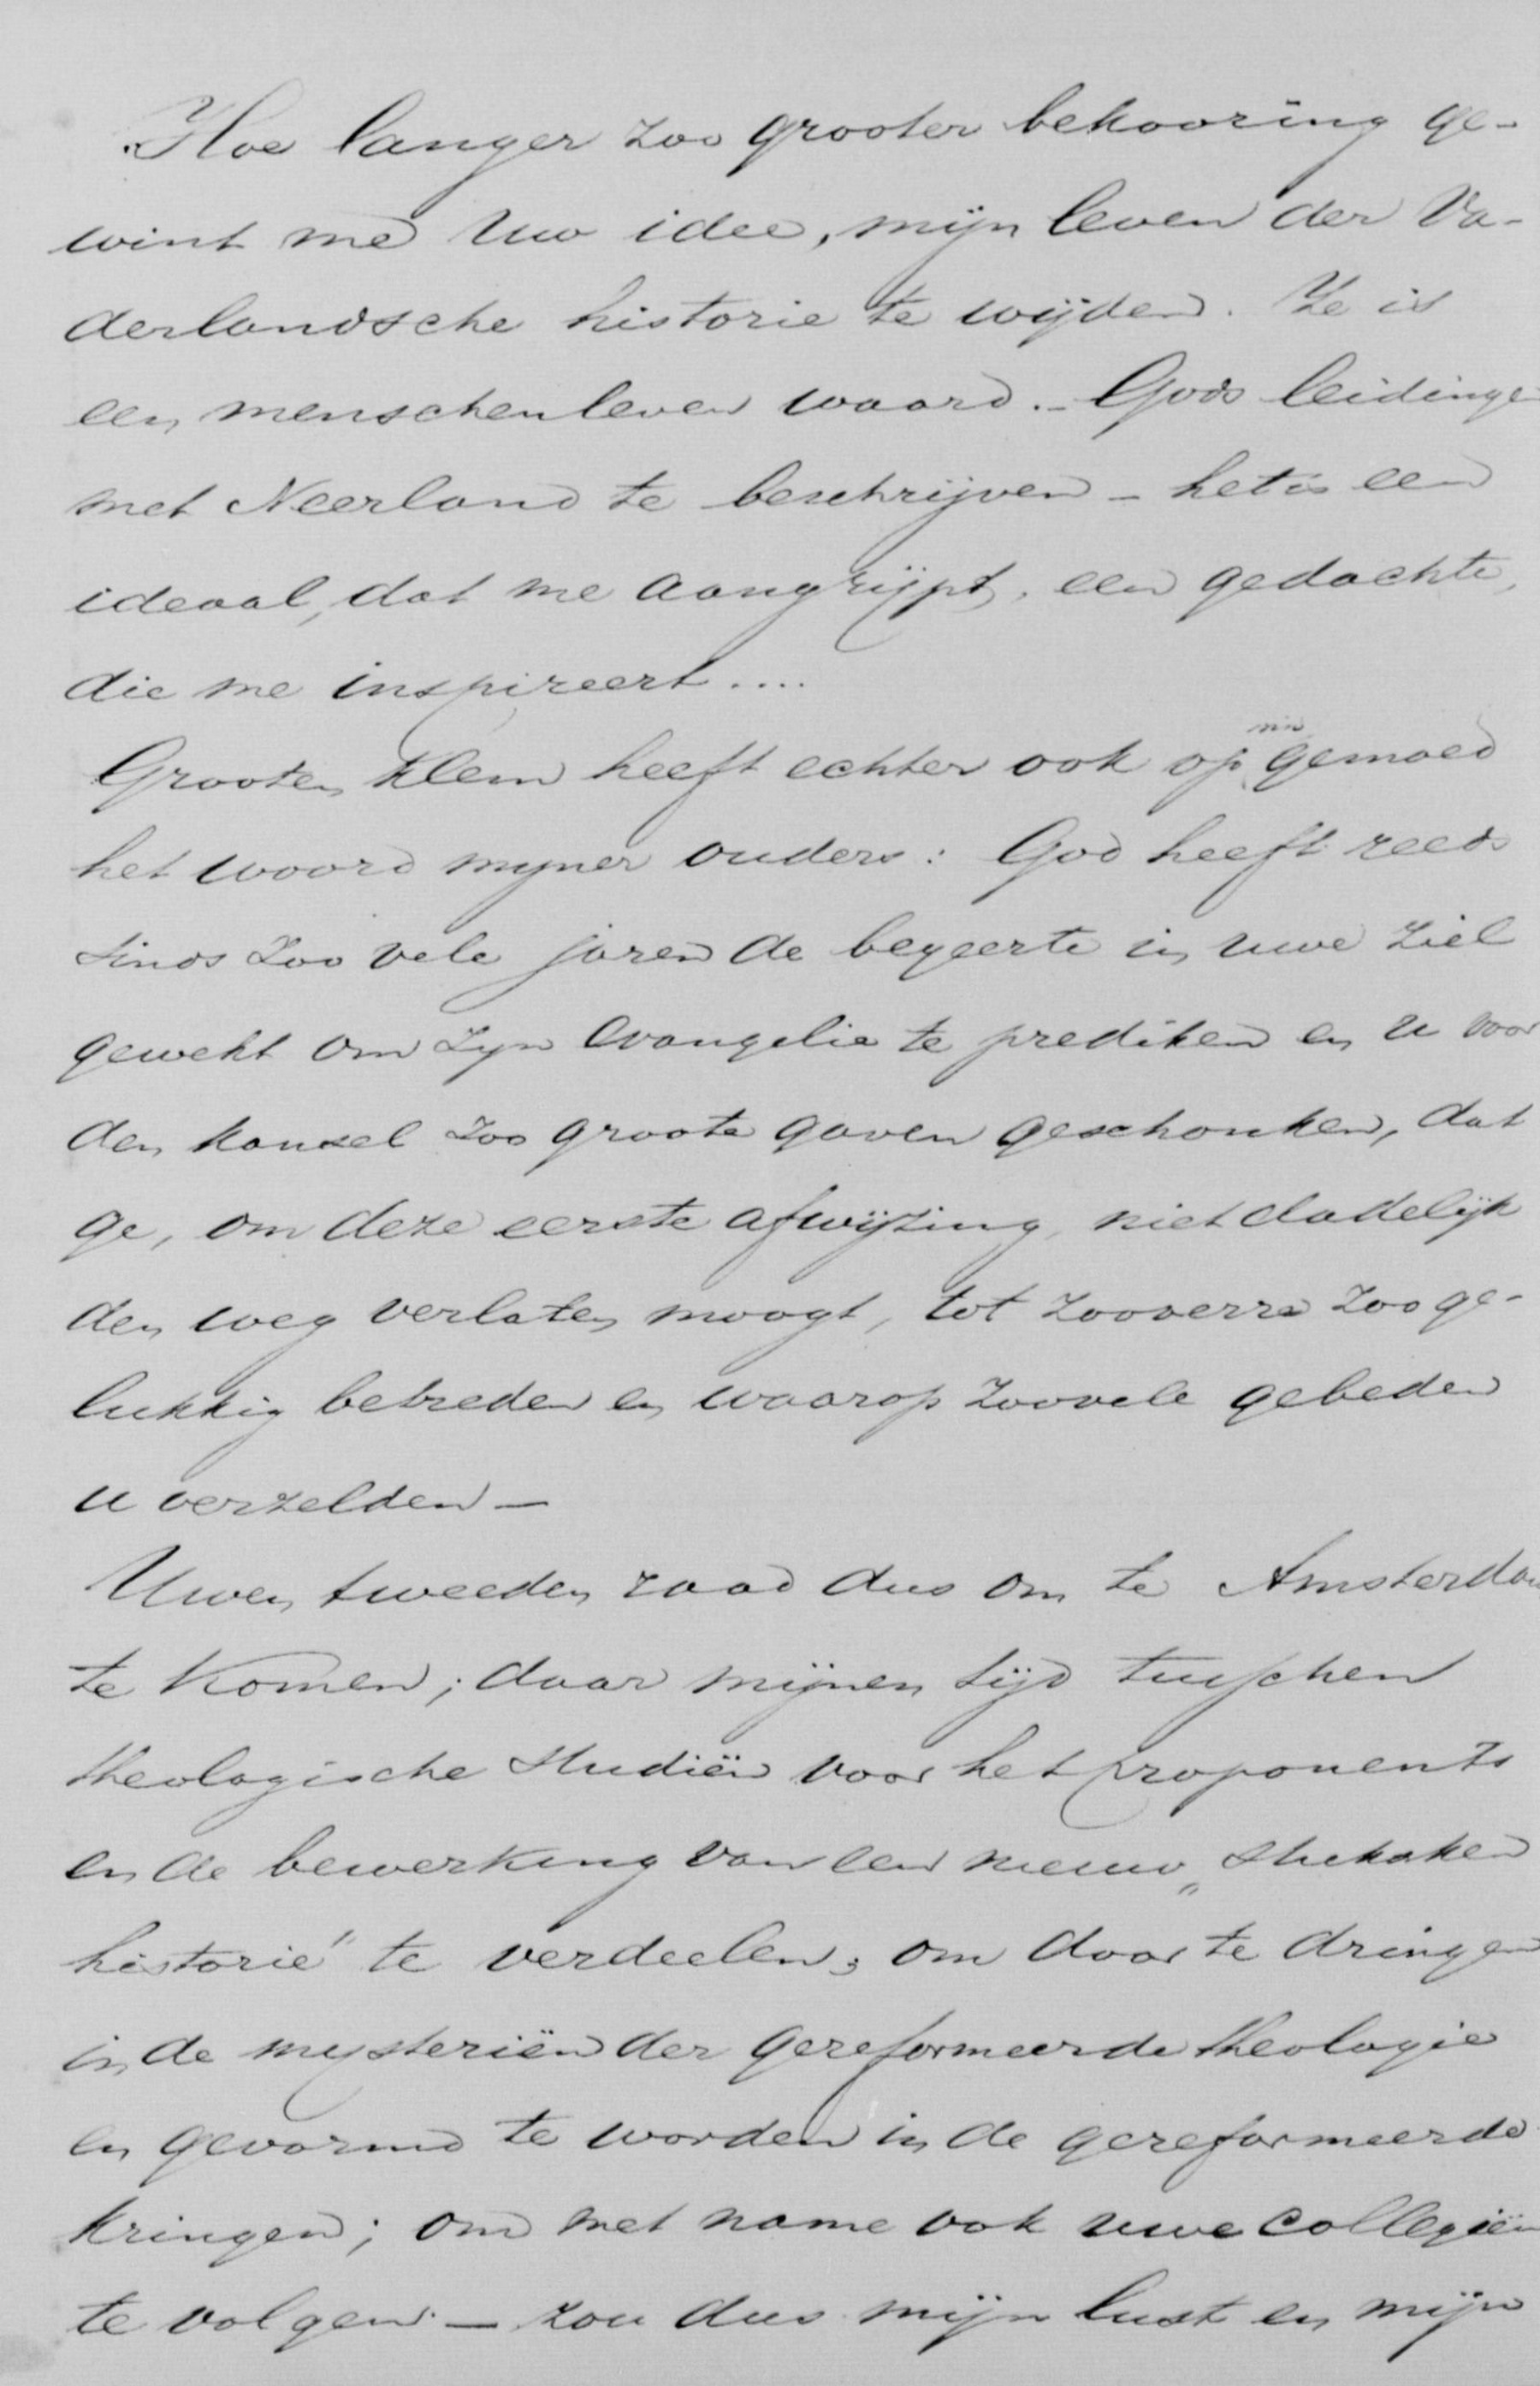 Hoe langer zoo grooter bekooring ge-
wint me Uw idee, mijn leven der Va-
derlandsche historie te wijden. Ze is
een menschenleven waard. - Gods leidinge
met Neerland te beschrijven - het is een
ideaal, dat me aangrijpt, een gedachte,
die me inspireert....
Grooten klem heeft echter ook op mijn gemoed
het woord mijner ouders: God heeft reeds
sinds zoo vele jaren de begeerte in uwe ziel
gewekt om Zijn Evangelie te prediken en u voor
den kansel zoo groote gaven geschonken, dat
ge, om deze eerste afwijzing, niet dadelijk
den weg verlaten moogt, tot zooverre zoo ge-
lukkig betreden en waarop zoovele gebeden
u verzelden -
Uwen tweeden raad dus om te Amsterdam
te komen; daar mijnen tijd tusschen
theologische studiën voor het proponents
en de bewerking van een nieuw „
historie" te verdeelen; om door te dringen
in de mysteriën der gereformeerde theologie
en gevormd te worden in de gereformeerde
kringen; om met name ook uwe collegiën
te volgen. - zou dus mijn lust en mijn